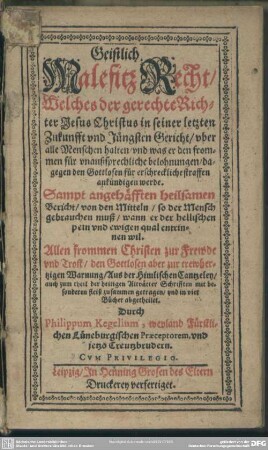 Geistlich
Malefitz Recht/
Welches der gerechte Rich-
ter Jesus Christus in seiner letzten
Zukunfft vnd Jüngsten Gericht/ vber
alle Menschen halten vnd was er den from-
men für vnaußsprechliche belohnungen/ da-
gegen den Gottlosen für erschreckliche straffen
ankündigen werde.
Sampt angehäfften heilsamen
Bericht/ von den Mitteln/ so der Mensch
gebrauchen muß/ wann er der hellischen
pein vnd ewigen qual entrin-
nen wil.
Allen frommen Christen zur Frewde
vnd Trost/ den Gottlosen aber zur trewher-
tzigen Warnung/ Aus der Himlischen Cantzeley/
auch zum theil der heiligen Altväter Schrifften mit be-
sonderem fleiß zusammen getragen/ vnd in vier
Bücher abgetheilet.
Durch
Philippum Kegelium, weyland Fürstli-
chen Lüneburgischen Præceptorem, vnd
jetzo Creutzbrudern.
CVM PRIVILEGIO.
Leipzig/ In Henning Grosen des Eltern
Druckerey verfertiget.